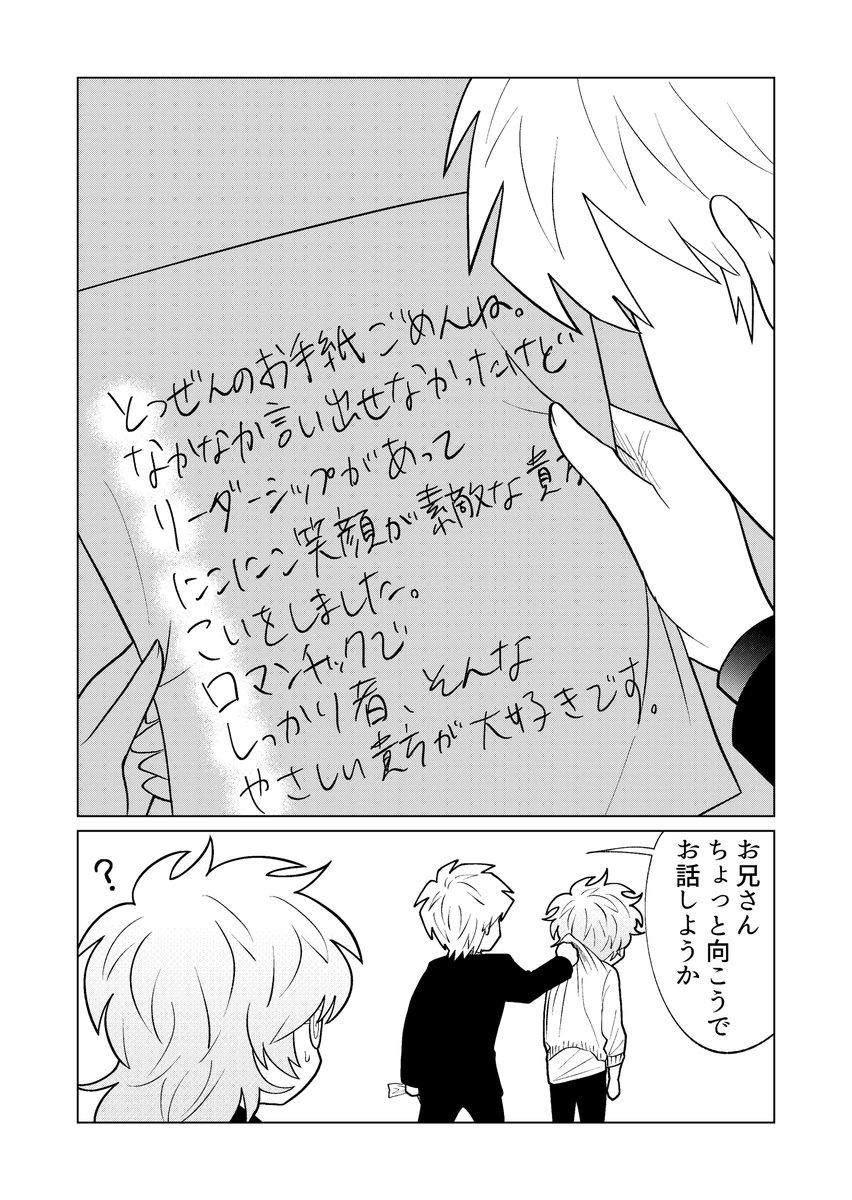 とつぜんのお手紙ごめんね。
なかなか言い出せなかったけど
リーダーシップがあって
にこにこ笑顔が素敵な貴方
こいをしました。
ロマンチックで
しっかり者、そんな
やさしい貴方が大好きです。
お兄さん
ちょっと向こうで
お話しようか
?